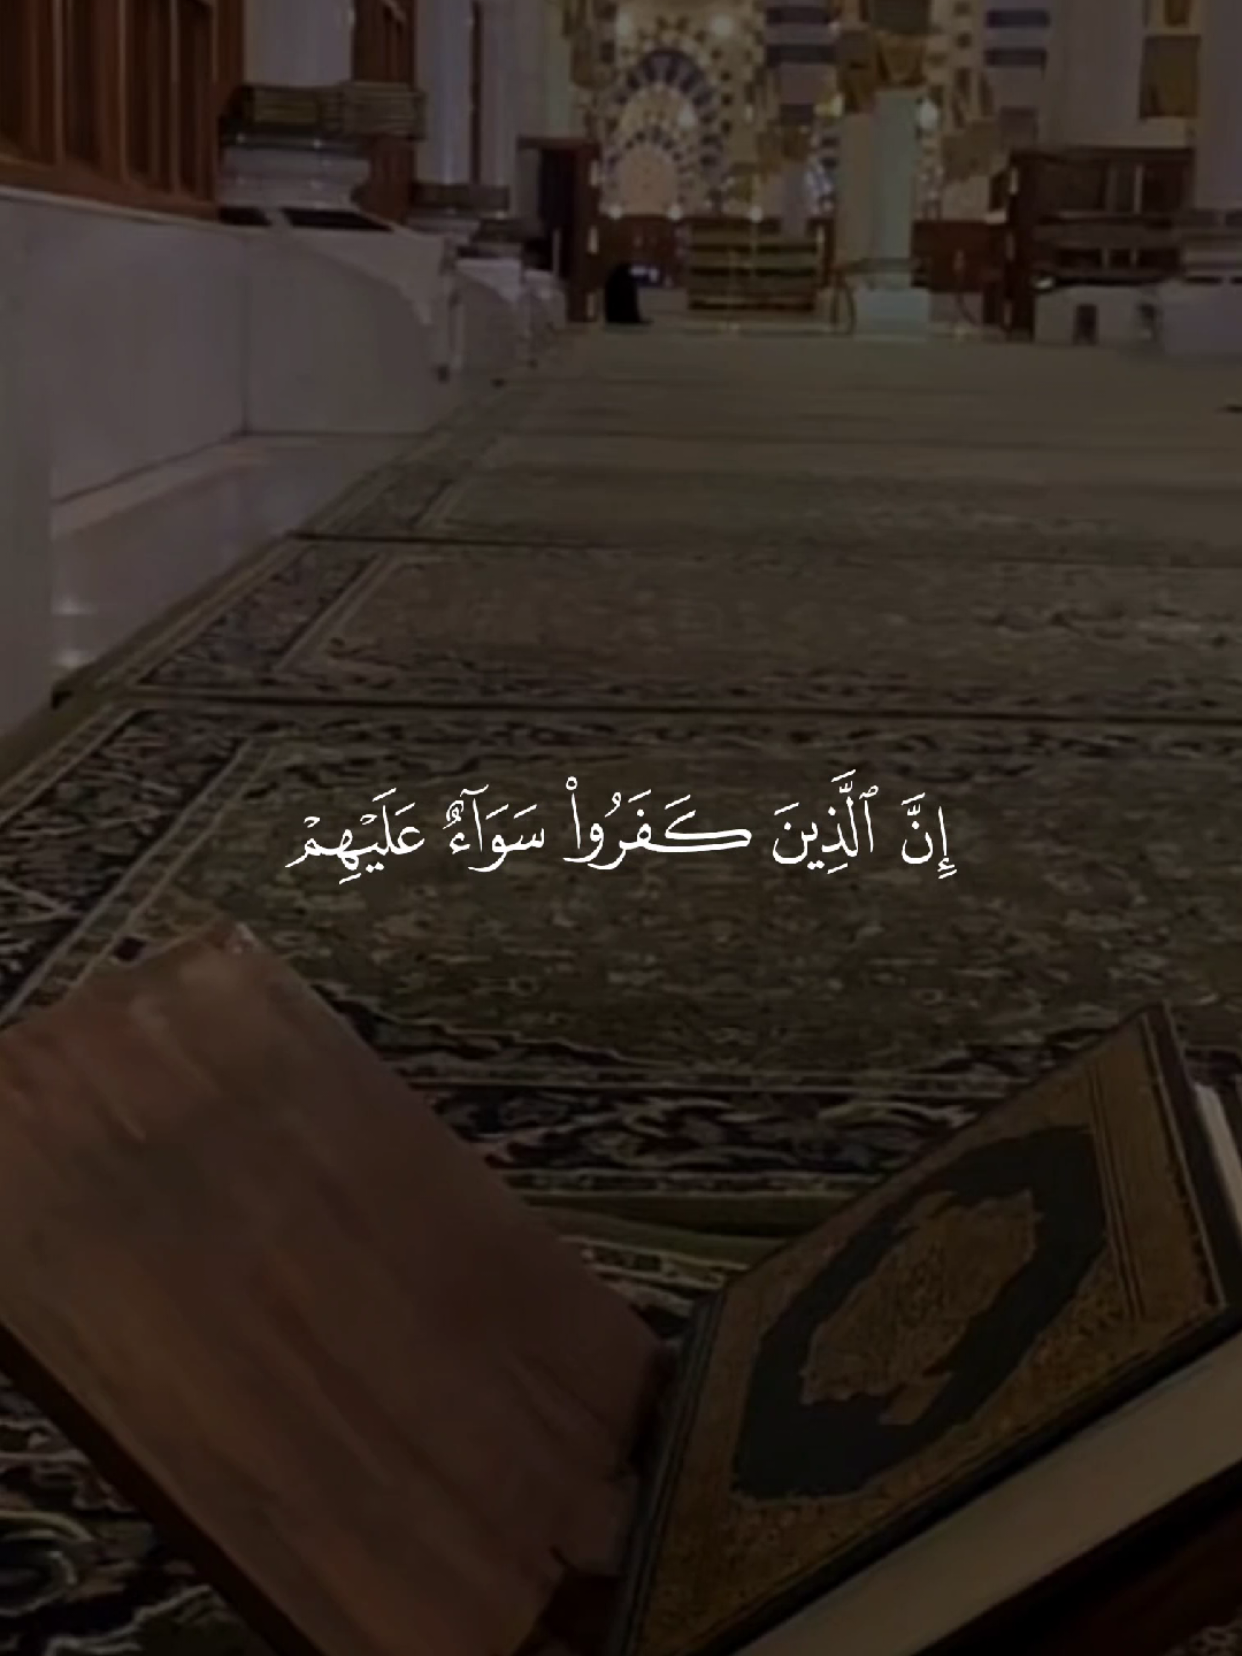 إِنَّ ٱلَّذِينَ كَفَرُوا۟ سَوَآءٌ عَلَيْهِمْ